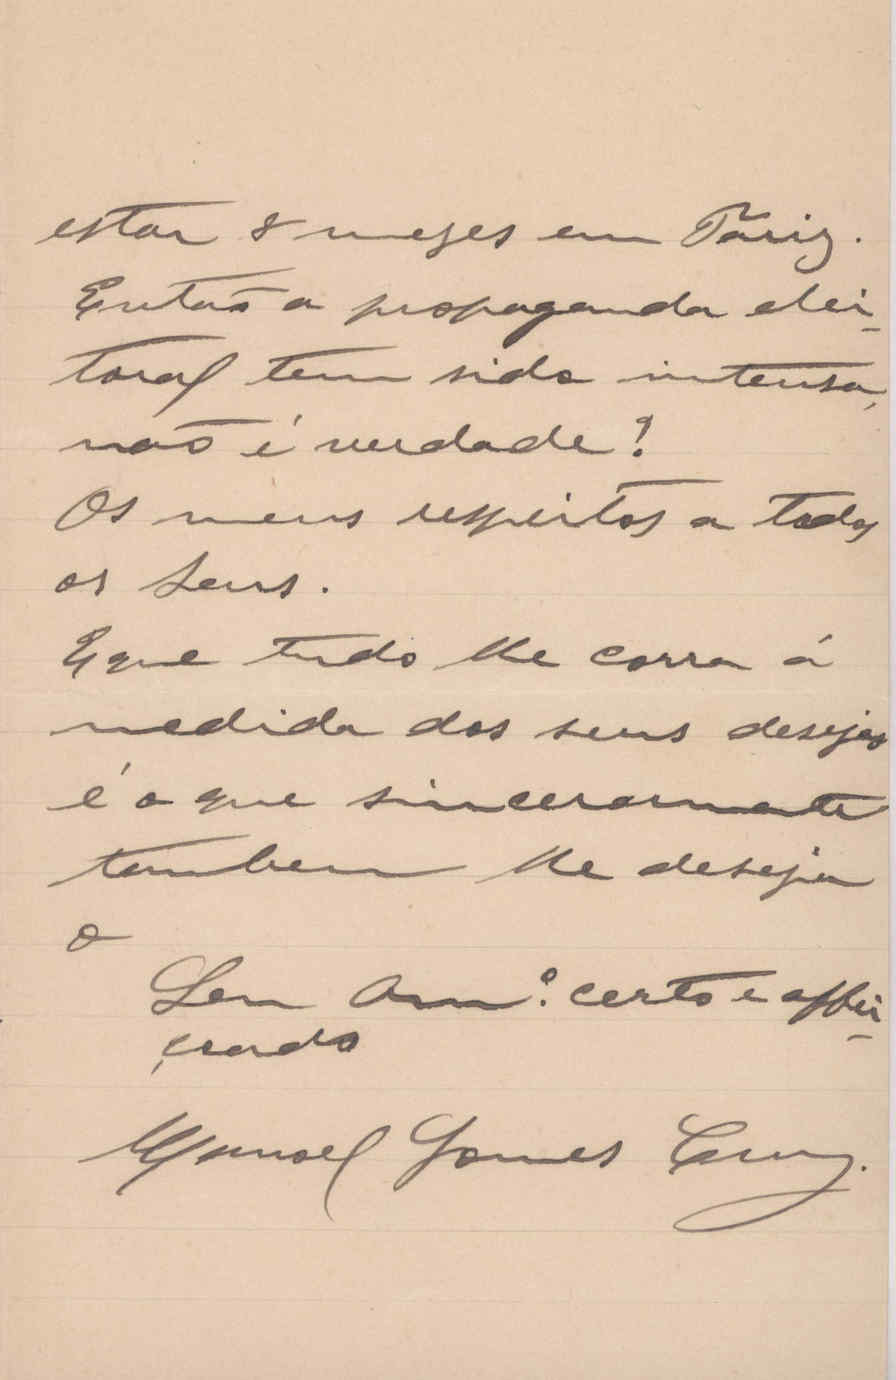 estar 8 mezes em Pariz.
Então a propaganda elei-
toral tem sido intensa,
não é verdade!
Os meus respeitos a todos
os seus.
E que tudo lhe corra á
medida dos seus desejos
é o que sinceramente
tambem lhe deseja
o
Seu Amº. certo e affei-
çoado
Manoel Gomes